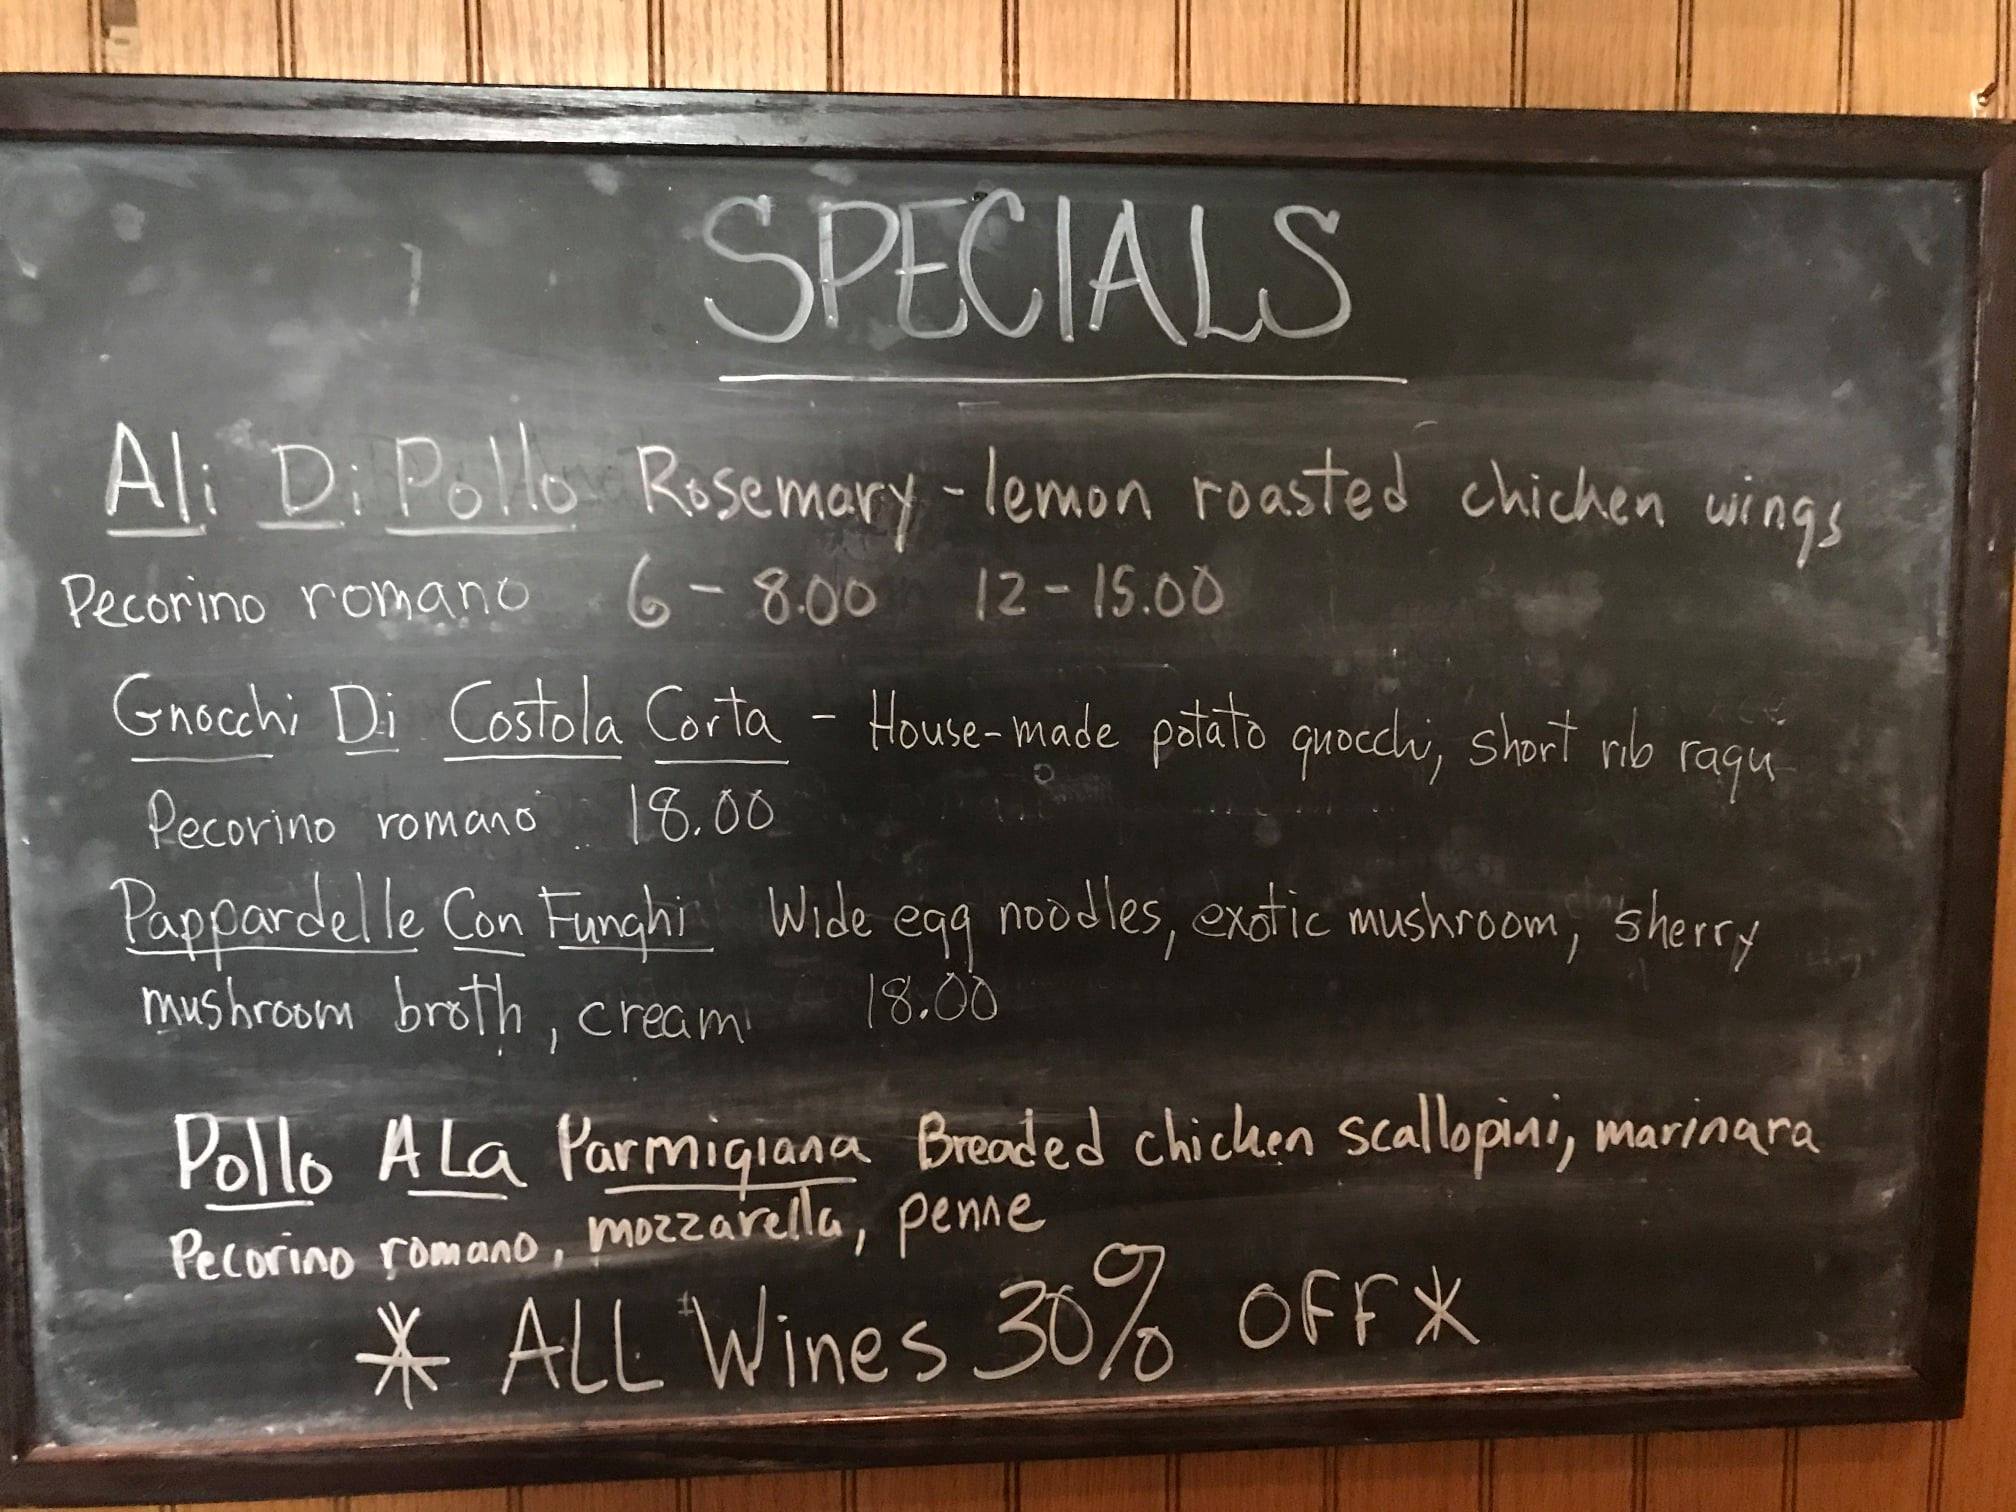 SPECIALS
Ali Di Pollo Rosemary - lemon roasted chicken wings
Pecorino romano 6 - 8.00 12 - 15.00
Gnocchi Di Costola Corta - House-made potato gnocchi, short rib ragu
Pecorino romano 18.00
Pappardelle Con Funghi Wide egg noodles, exotic mushroom, sherry
mushroom broth, cream 18.00
Pollo A La Parmigiana Breaded chicken scallopini, marinara
Pecorino romano, mozzarella, penne
* ALL Wines 30% OFF *